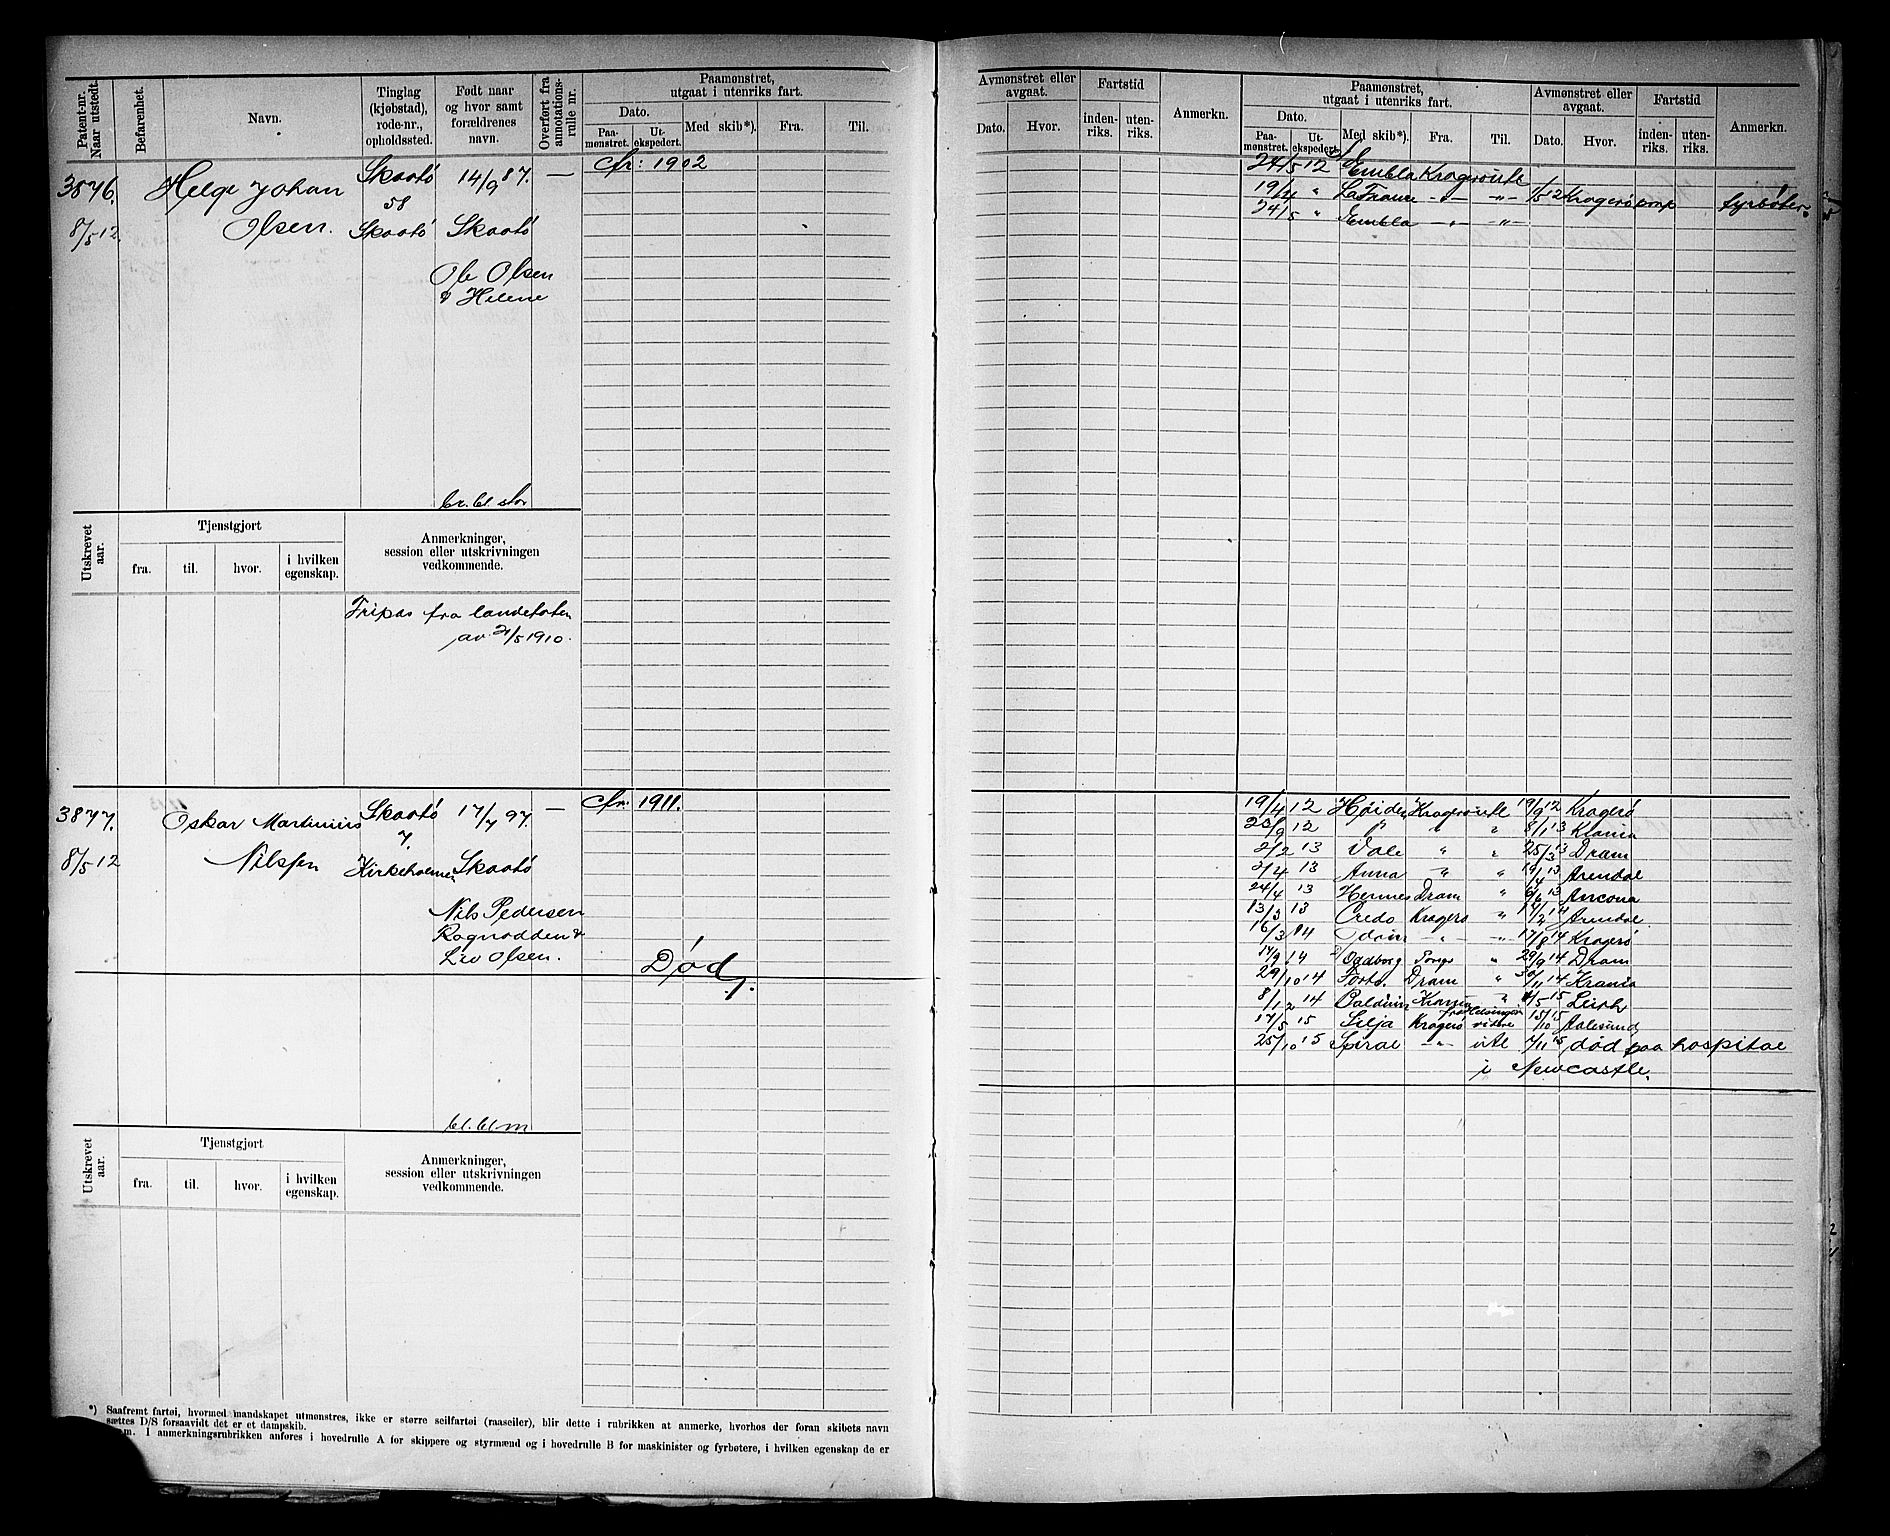 Patent-nr. Naar utstedt. Befarenhet. Navn. Tinglag (kjøbstad), rode-nr., opholdssted. Født naar og hvor samt forældrenes navn. Overført fra annotations-rulle nr. Paamønstret, utgaat i utenriks fart.
Dato. Paa-mønstret. Ut-ekspedert. Med skib*). Fra. Til.
Avmønstret eller avgaat. Dato. Hvor. Fartstid inden-riks. uten-riks. Anmerkn. Paamønstret, utgaat i utenriks fart. Dato. Paa-mønstret. Ut-ekspedert. Med skib*). Fra. Til. Avmønstret eller avgaat. Dato. Hvor. Fartstid inden-riks. uten-riks. Anmerkn.
3876. Helge Johan Skaatø 14/9 87. — cfr: 1902
Olsen. 58
8/5 12. Skaatø Skaatø
Ole Olsen
& Helene
br. bl. stor
24/5 12 Embla Kragerø ute
19/4 " La France -"- -"- 1/5 12 Kragerø fyrbøter.
24/5 " Embla -"- -"-
Utskrevet aar. Tjenstgjort fra. til. hvor. i hvilken egenskap. Anmerkninger, session eller utskrivningen vedkommende.
Fripas fra landetaten
av 21/5 1910.
3877. Oskar Martinius Skaatø 17/7 97. — cfr. 1911.
8/5 12 Nilsen 7. Kirkeholmen Skaatø
Nils Pedersen
Ragnodden &
Liv Olsen.
Død
bl. bl m
19/4 12 Høiden Kragerø ute 19/9 12 Kragerø
23/9 12 " " " 8/1 13 Kr.ania
2/2 13 Vale " " 25/3 13 Dram
2/4 13 Anna " " 19/4 13 Arendal
24/4 13 Hermes Dram " 6/6 13 Ancona
13/9 13 Credo Kragerø " 14 Arendal
16/3 14 Odin -"- -"- 17/8 14 Kragerø
17/9 14 Oddborg Porsgr " 29/9 14 Dram
29/10 14 Forts. Dram " 30/11 14 Kr.ania
8/12 14 Baldwin Kr.ania " 4/5 15 Leith
17/5 15 Silja Kragerø fra Helsingør videre 15/10 15 Aalesund
25/10 15 Spiral -"- ute 7/11 15 død paa hospital
i Newcastle.
Utskrevet aar. Tjenstgjort fra. til. hvor. i hvilken egenskap. Anmerkninger, session eller utskrivningen vedkommende.
*) Saafremt fartøi, hvormed mandskapet utmønstres, ikke er større seilfartøi (raaseiler), blir dette i rubrikken at anmerke, hvorhos der foran skibets navn
sættes D/S forsaavidt det er et dampskib.
I anmerkningsrubrikken anføres i hovedrulle A for skippere og styrmænd og i hovedrulle B for maskinister og fyrbøtere, i hvilken egenskap de er